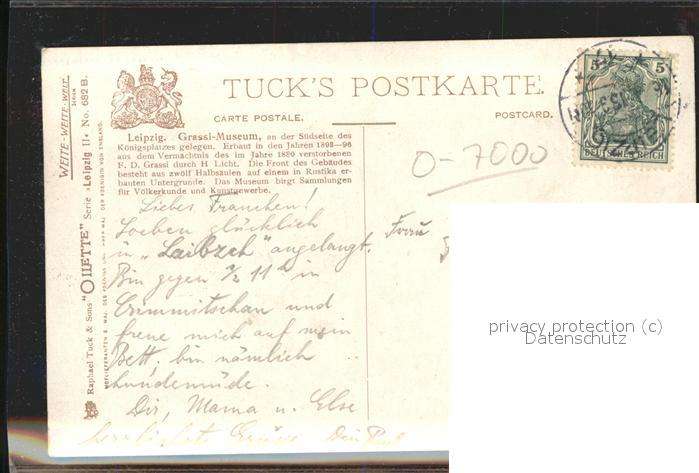 WEITE-WEITE WELT
SERIEN
Raphael Tuck & Sons "OILETTE" Serie »Leipzig II« No. 682 B.
HOFLIEFERANTEN S. MAJ. DES KÖNIGS UND IHRER MAJ. DER KÖNIGIN VON ENGLAND.
TUCK'S POSTKARTE.
CARTE POSTALE.
POSTCARD.
Leipzig. Grassi-Museum, an der Südseite des
Königsplatzes gelegen. Erbaut in den Jahren 1893—96
aus dem Vermächtnis des im Jahre 1880 verstorbenen
F. D. Grassi durch H Licht. Die Front des Gebäudes
besteht aus zwölf Halbsäulen auf einem in Rustika er-
bauten Untergrunde. Das Museum birgt Sammlungen
für Völkerkunde und Kunstgewerbe.
5 5
DEUTSCHES REICH
O-7000
Liebes Frauchen!
Soeben glücklich
in „Laibzch" angelangt.
Bin gegen ½ 11 in
Crimmitschau und
freue mich auf mein
Bett, bin nämlich
hundemüde.
Dir, Mama u. Else
herzlichste Grüsse Dein
Frau
privacy protection (c)
Datenschutz